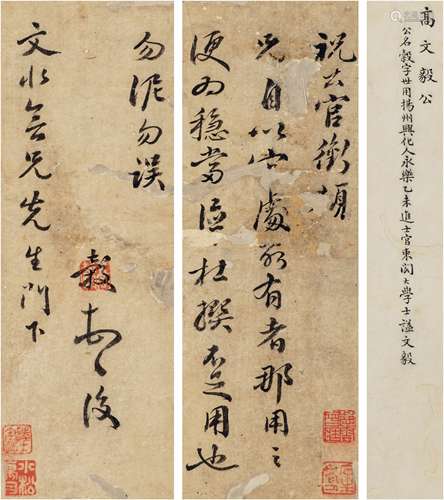 高文毅公
公名穀字世用揚州興化人永樂乙未進士官東閣大學士謚文毅
官銜須
兄自以處所有者那用之
便为穩當區杜撰不足用也
勿泥勿误
穀復
文水兄先生門下